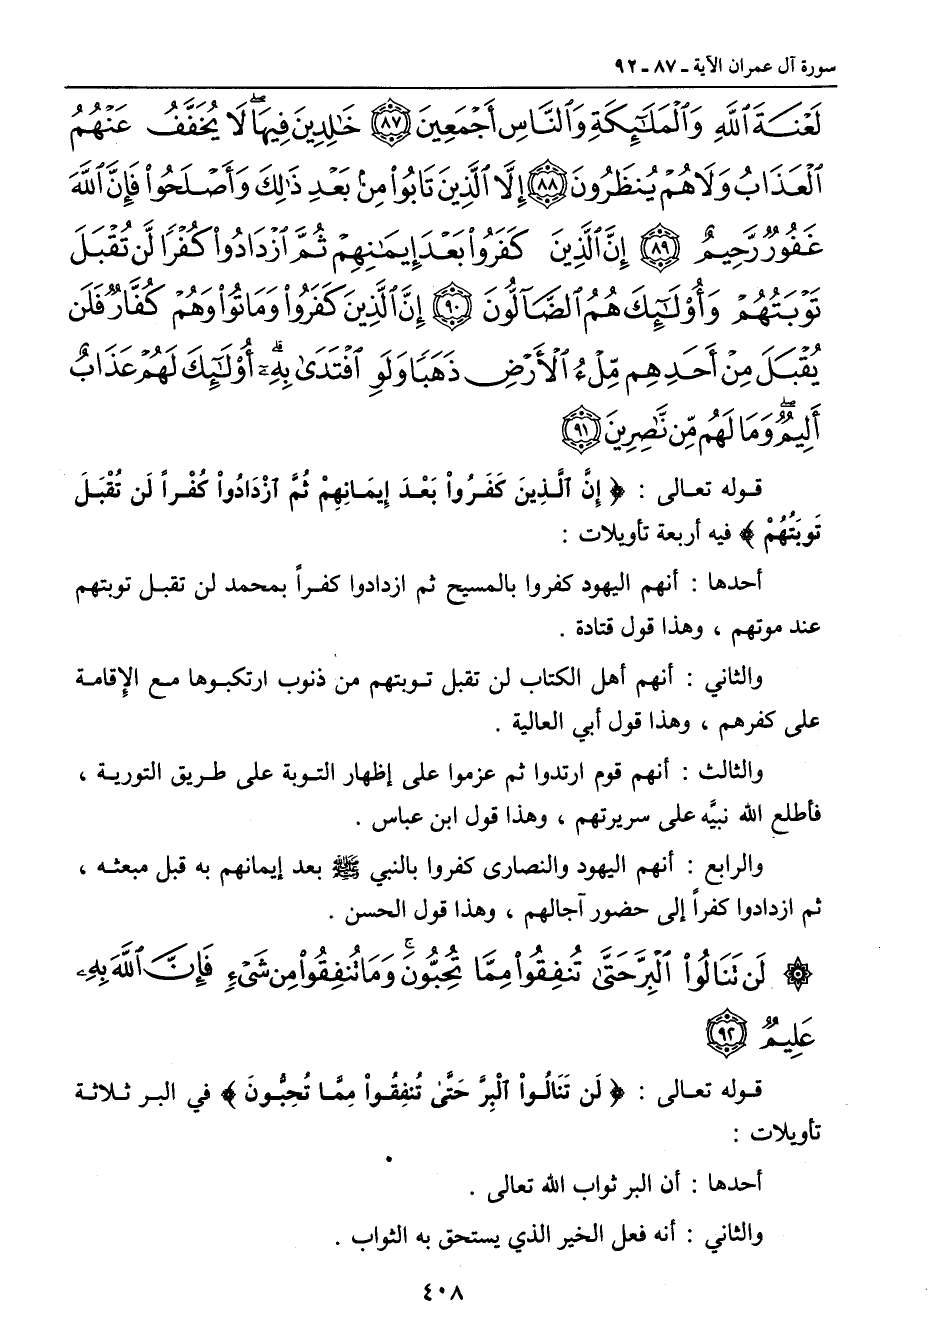 سورة آل عمران الآية ـ ٨٧ ـ ٩٢
لَعْنَةَ ٱللَّهِ وَٱلْمَلَٰٓئِكَةِ وَٱلنَّاسِ أَجْمَعِينَ ٨٧ خَٰلِدِينَ فِيهَا ۖ لَا يُخَفَّفُ عَنْهُمُ
ٱلْعَذَابُ وَلَا هُمْ يُنظَرُونَ ٨٨ إِلَّا ٱلَّذِينَ تَابُوا۟ مِنۢ بَعْدِ ذَٰلِكَ وَأَصْلَحُوا۟ فَإِنَّ ٱللَّهَ
غَفُورٌ رَّحِيمٌ ٨٩ إِنَّ ٱلَّذِينَ كَفَرُوا۟ بَعْدَ إِيمَٰنِهِمْ ثُمَّ ٱزْدَادُوا۟ كُفْرًا لَّن تُقْبَلَ
تَوْبَتُهُمْ وَأُو۟لَٰٓئِكَ هُمُ ٱلضَّآلُّونَ ٩٠ إِنَّ ٱلَّذِينَ كَفَرُوا۟ وَمَاتُوا۟ وَهُمْ كُفَّارٌ فَلَن
يُقْبَلَ مِنْ أَحَدِهِم مِّلْءُ ٱلْأَرْضِ ذَهَبًا وَلَوِ ٱفْتَدَىٰ بِهِۦٓ ۗ أُو۟لَٰٓئِكَ لَهُمْ عَذَابٌ
أَلِيمٌ ۖ وَمَا لَهُم مِّن نَّٰصِرِينَ ٩١
قوله تعالى : ﴿ إِنَّ ٱلَّذِينَ كَفَرُواْ بَعْدَ إِيمَانِهِمْ ثُمَّ ٱزْدَادُواْ كُفْراً لَن تُقْبَلَ
تَوبَتُهُمْ ﴾ فيه أربعة تأويلات :
أحدها : أنهم اليهود كفروا بالمسيح ثم ازدادوا كفراً بمحمد لن تقبل توبتهم
عند موتهم ، وهذا قول قتادة .
والثاني : أنهم أهل الكتاب لن تقبل توبتهم من ذنوب ارتكبوها مع الإقامة
على كفرهم ، وهذا قول أبي العالية .
والثالث : أنهم قوم ارتدوا ثم عزموا على إظهار التوبة على طريق التورية ،
فأطلع الله نبيَّه على سريرتهم ، وهذا قول ابن عباس .
والرابع : أنهم اليهود والنصارى كفروا بالنبي ﷺ بعد إيمانهم به قبل مبعثه ،
ثم ازدادوا كفراً إلى حضور آجالهم ، وهذا قول الحسن .
۞ لَن تَنَالُوا۟ ٱلْبِرَّ حَتَّىٰ تُنفِقُوا۟ مِمَّا تُحِبُّونَ ۚ وَمَا تُنفِقُوا۟ مِن شَىْءٍ فَإِنَّ ٱللَّهَ بِهِۦ
عَلِيمٌ ٩٢
قوله تعالى : ﴿ لَن تَنَالُواْ ٱلْبِرَّ حَتَّىٰ تُنْفِقُواْ مِمَّا تُحِبُّونَ ﴾ في البر ثلاثة
تأويلات :
أحدها : أن البر ثواب الله تعالى .
والثاني : أنه فعل الخير الذي يستحق به الثواب .
٤٠٨